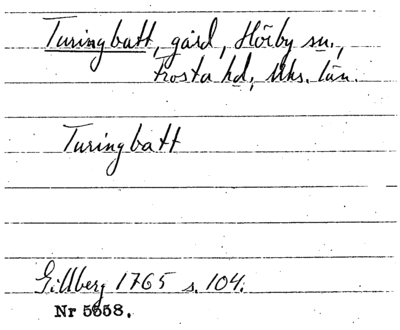 Turingbatt, gård, Hörby sn.,
Frosta hd, Mhs. län.
Turingbatt
Gillberg 1765 s. 104.
Nr 5658.